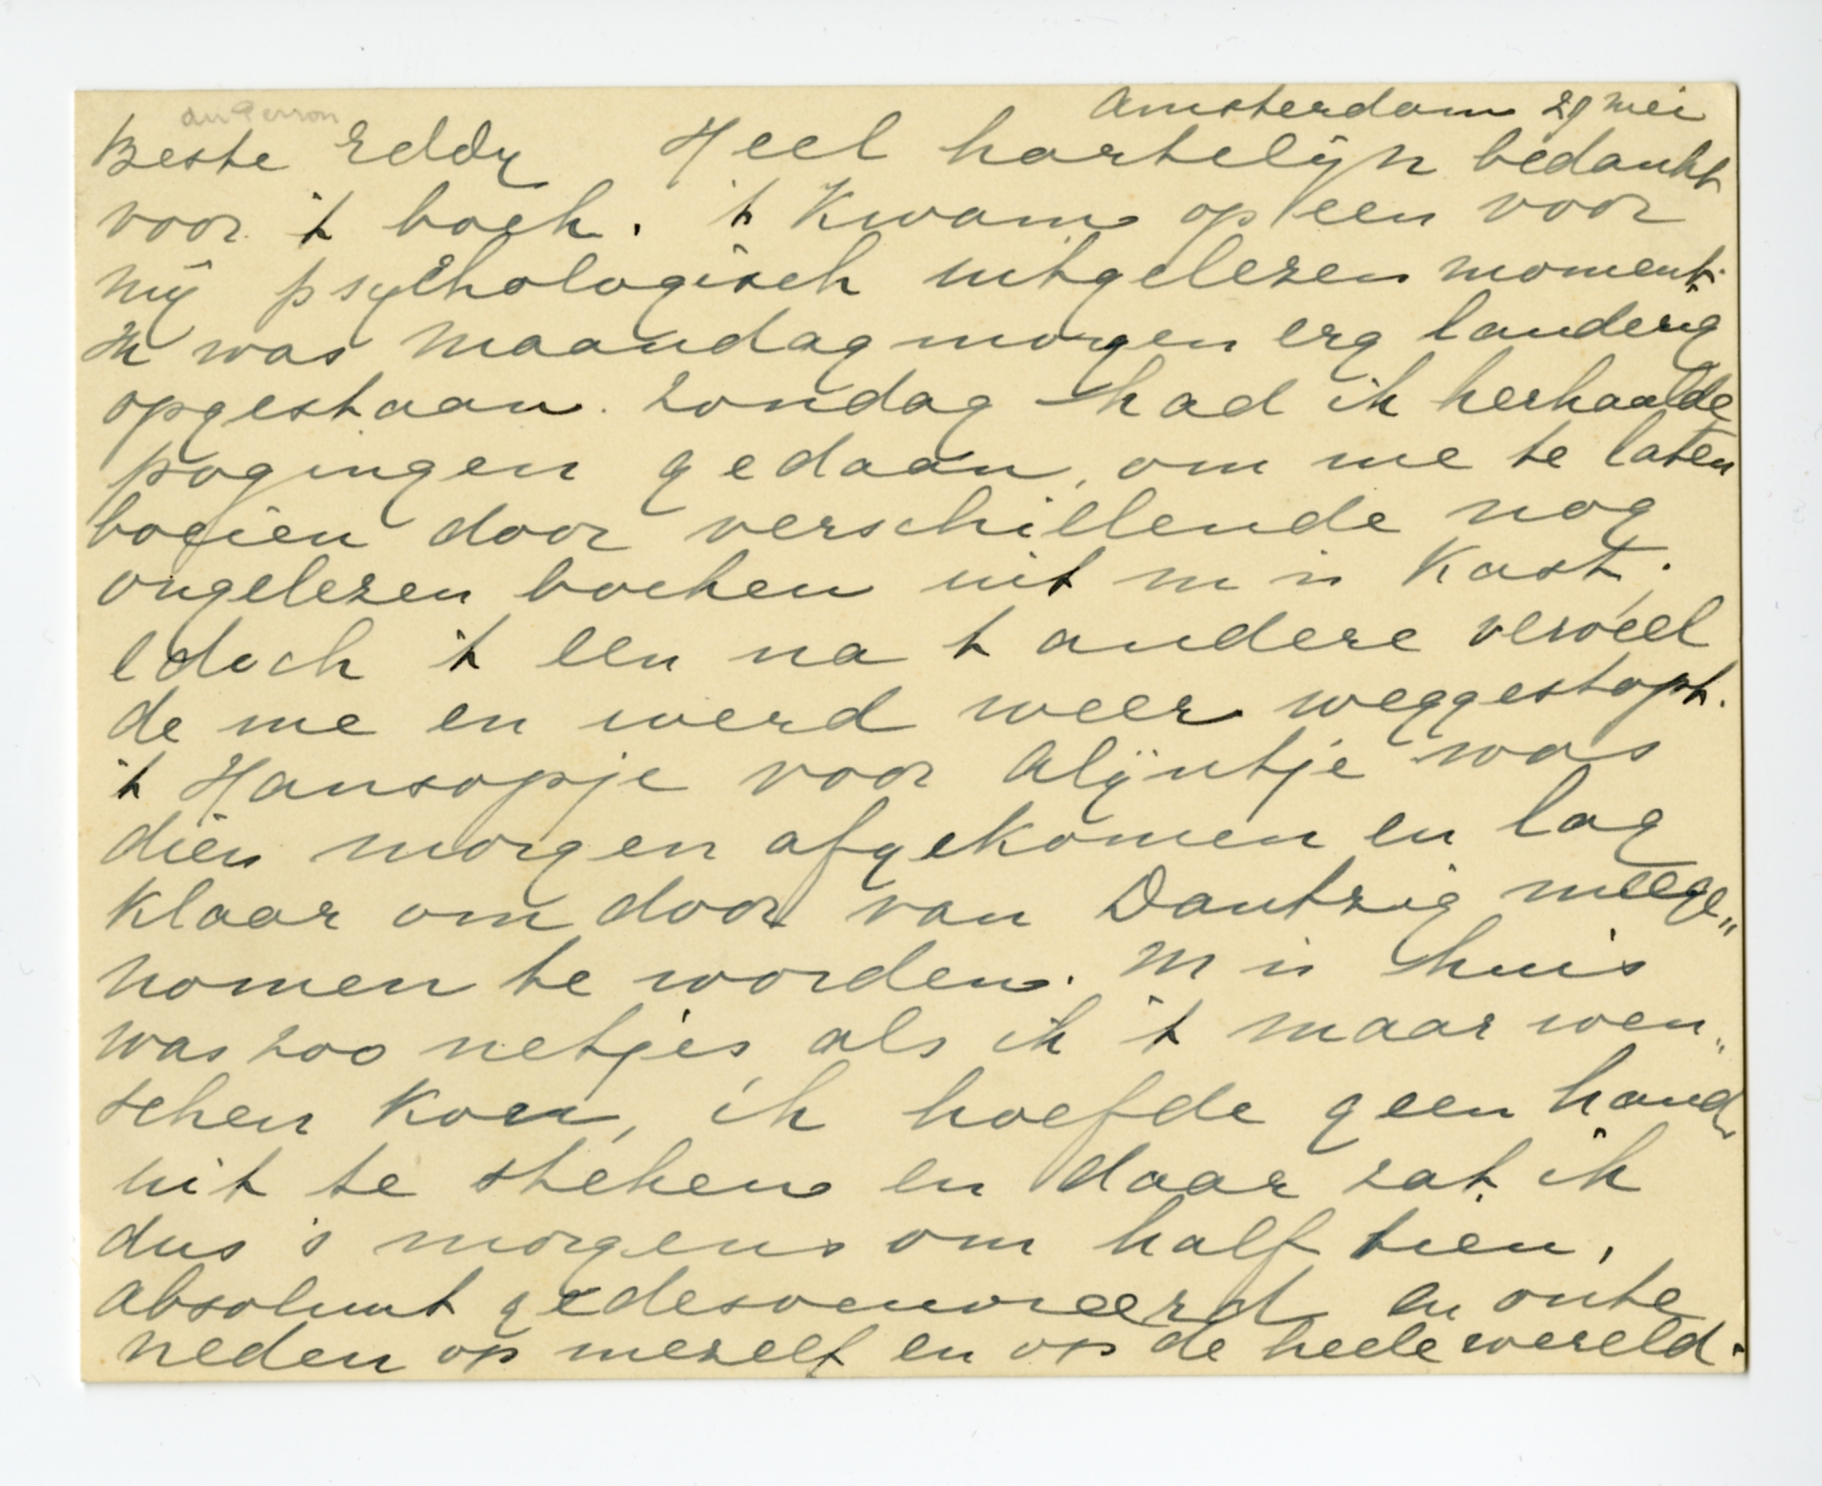 Amsterdam 29 mei
du Perron
Beste Eddy Heel hartelijn bedankt
voor 't boek. 't Kwam op een voor
mij psychologisch uitgelezen moment.
Ik was maandagmorgen erg landerig
opgestaan. Zondag had ik herhaalde
pogingen gedaan, om me te laten
boeien door verschillende nog
ongelezen boeken uit m'n Kast,
edoch 't een na 't andere verveel
de me en werd weer weggestopt.
't Hansopje voor Alijntje was
dien morgen afgekomen en lag
klaar om door van Dantzig meege„
nomen te worden. M'n huis
was zoo netjes als ik 't maar wen„
schen kon, ik hoefde geen hand
uit te steken en daar zat ik
dus 's morgens om half tien,
absoluut gedesoeuvreerd en onte
vreden op mezelf en op de heele wereld.